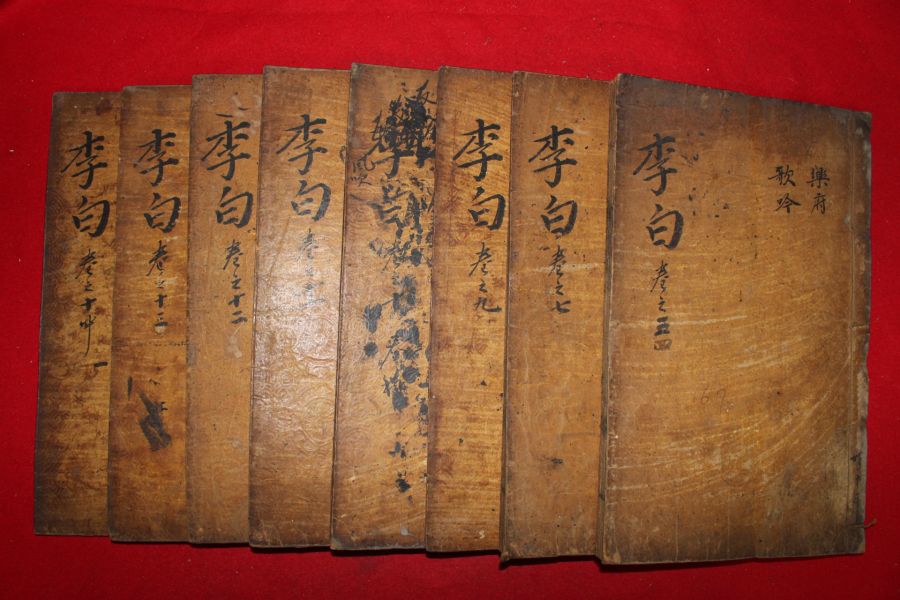 樂府
歌吟
李白 卷之三四
李白 卷之七
李白 卷之九
李白
李白 卷之
李白 卷之十二
李白 卷之十三
李白 卷之十四
一